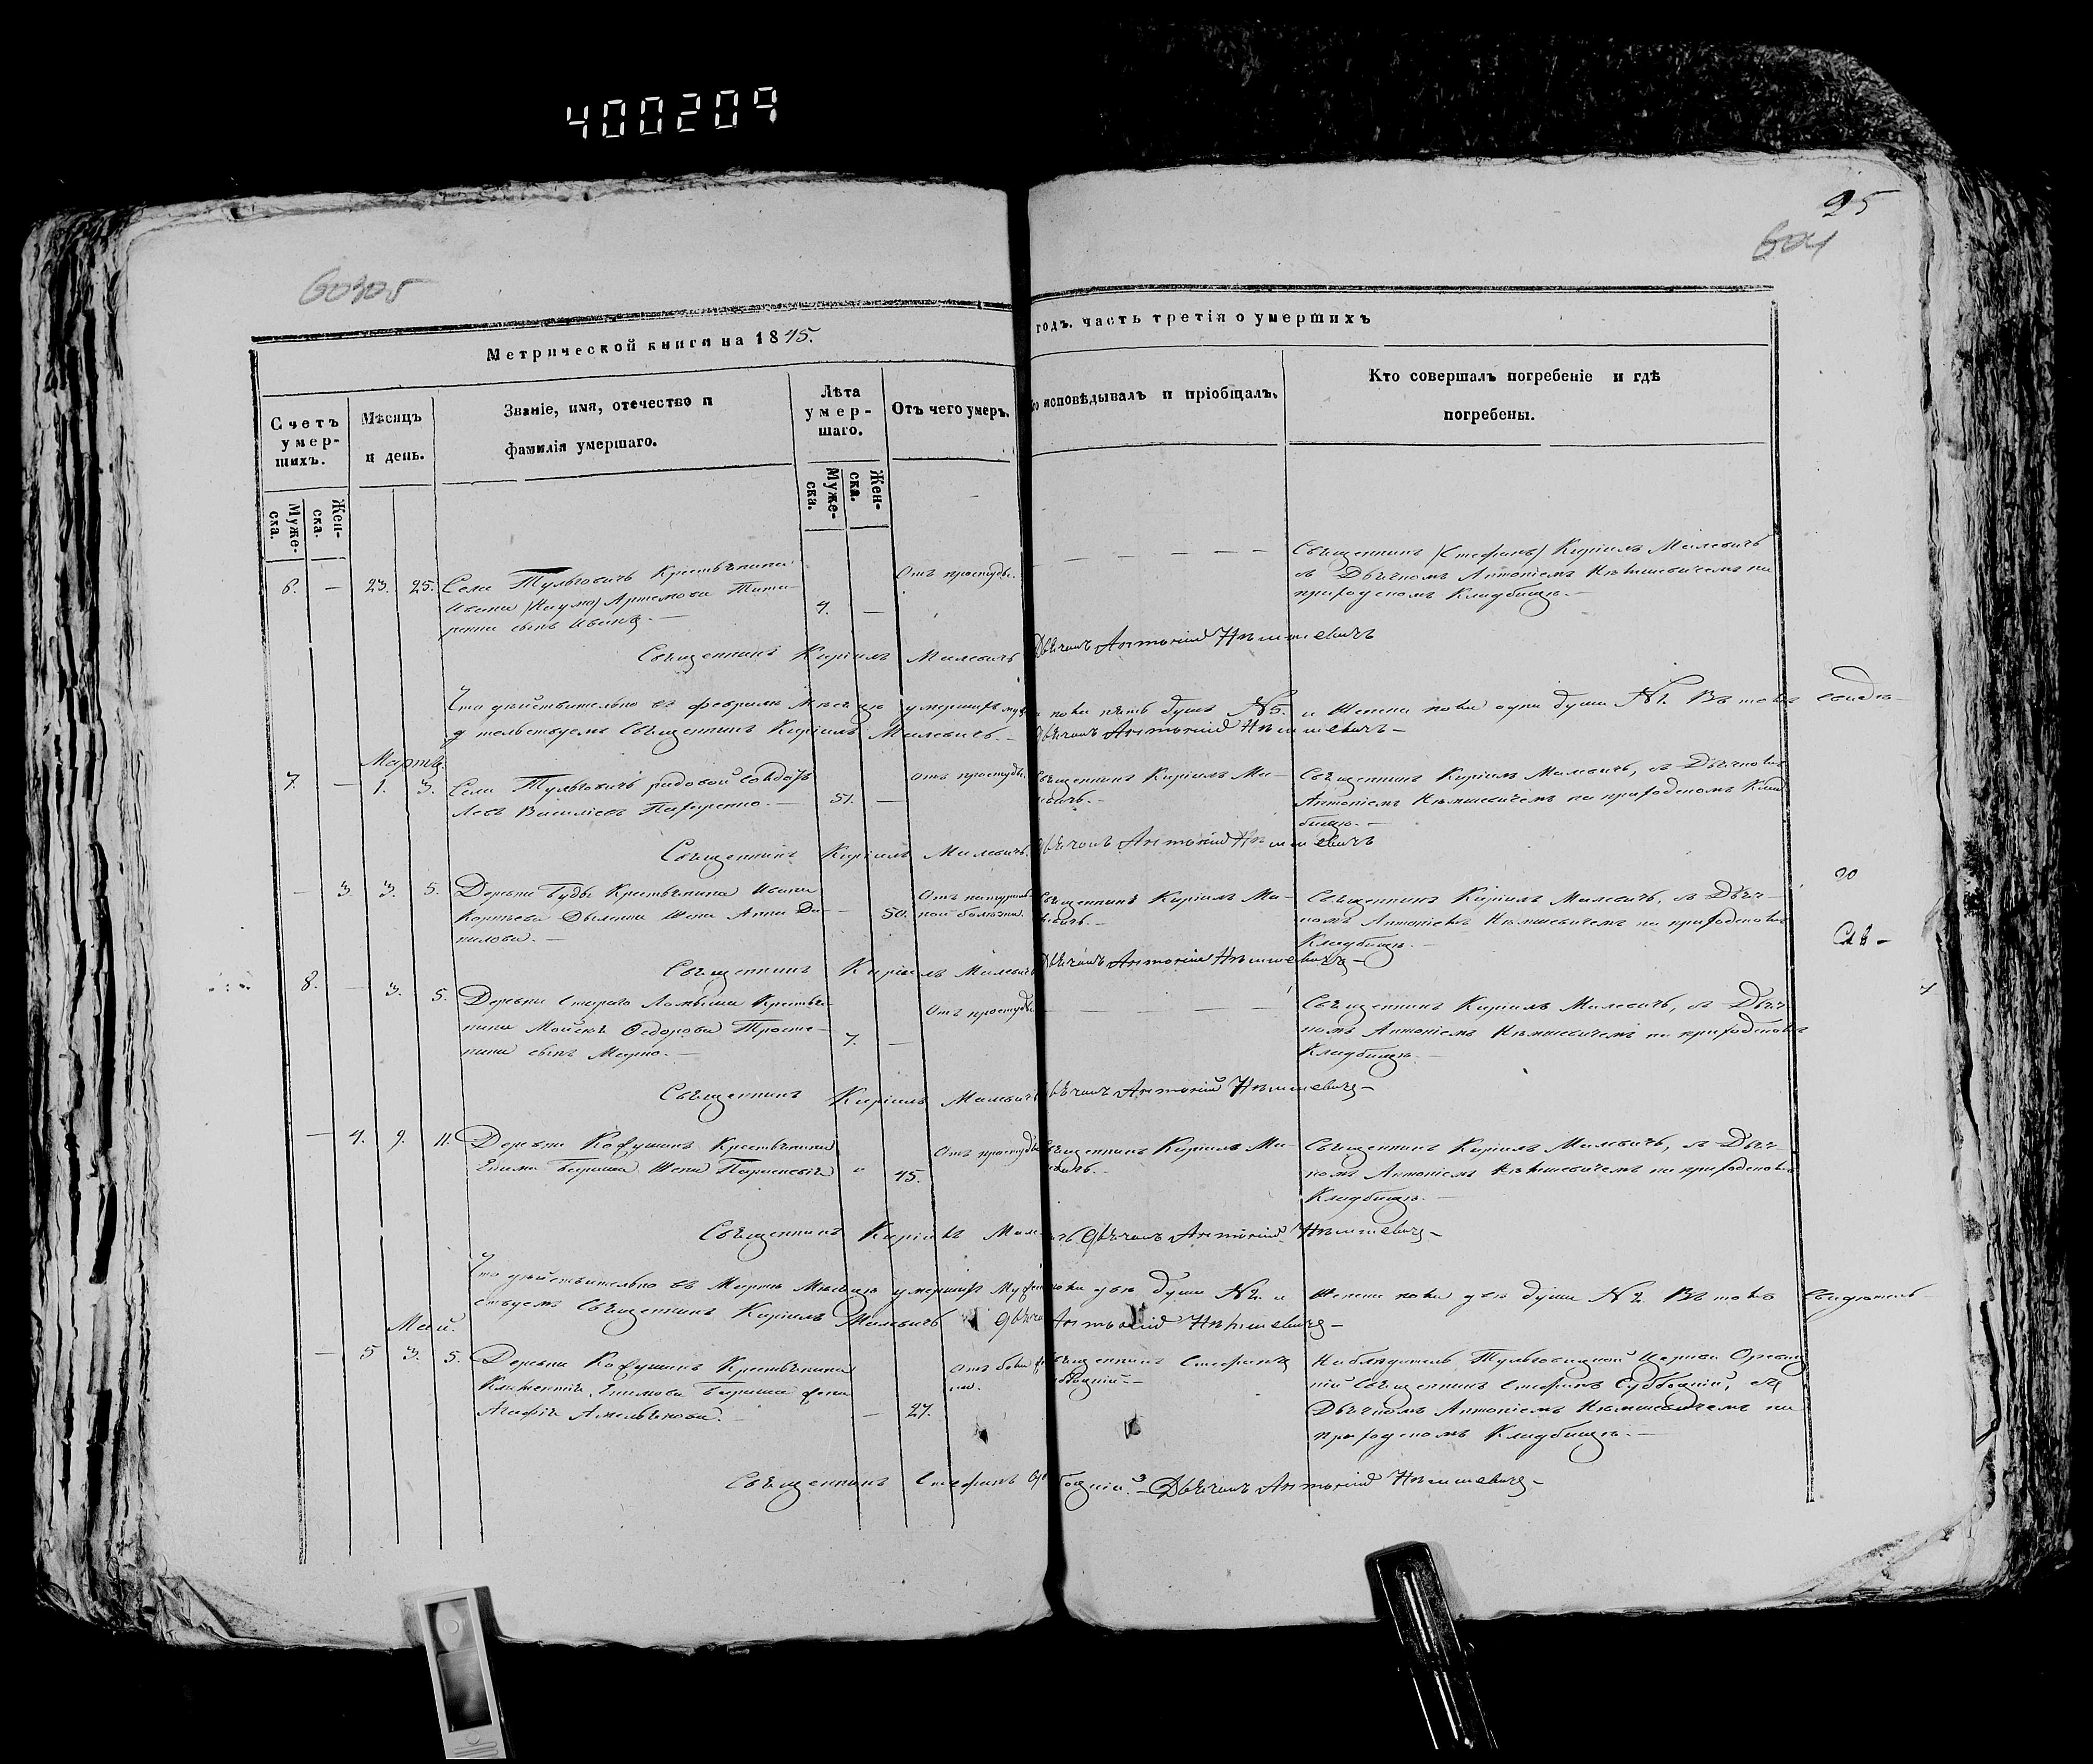 400209
95
604
60305
Метрической книги на 1845.
годъ. часть третія о умершихъ
Счетъ умер-шихъ.
Мѣсяцъ и день.
Званіе, имя, отечество и фамилія умершаго.
Лѣта умер-шаго.
Отъ чего умеръ.
исповѣдывалъ и пріобщалъ.
Кто совершалъ погребеніе и гдѣ погребены.
Муже-ска.
Жен-ска.
Муже-ска.
Жен-ска.
6. — 23. 25. Села Тульговичъ Крестьянина
Ивана /Наума/ Артемова Тита-
ренка сынъ Иванъ. —
4. —
Отъ простуды.
— — — — —
Священникъ /Стефанъ/ Кириллъ Малевичъ
съ Дьячкомъ Антоніемъ Нѣмшевичемъ на
приходскомъ Кладбищѣ. —
Священникъ Кириллъ Малевичъ Дьячокъ Антоній Нѣмшевичъ
Что дѣйствительно въ февралѣ Мѣсяцѣ умершихъ пять душъ № 5. и Женска пола одна душа № 1. Въ томъ свидѣ-
тельствуемъ Священникъ Кириллъ Малевичъ. — Дьячокъ Антоній Нѣмшевичъ —
Марта.
7. — 1. 3. Села Тульговичъ рядовой солдатъ
Левъ Василіевъ —
51. —
Отъ простуды.
Священникъ Кириллъ Ма-
левичъ. —
Священникъ Кириллъ Малевичъ, съ Дьячкомъ
Антоніемъ Нѣмшевичемъ на приходскомъ Клад-
бищѣ. —
Священникъ Кириллъ Малевичъ. Дьячокъ Антоній Нѣмшевичъ
— 3 3. 5. Деревни Буды Крестьянина Ивана
Жена Анна Да-
нилова. —
— 50.
Отъ натураль-
ной болѣзни.
Священникъ Кириллъ Ма-
левичъ. —
Священникъ Кириллъ Малевичъ, съ Дьяч-
комъ Антоніемъ Нѣмшевичемъ на приходскомъ
Кладбищѣ. —
Священникъ Кириллъ Малевичъ Дьячокъ Антоній Нѣмшевичъ —
8. — 3. 5. Деревни Стараго Ломыша Крестья-
нина Моисея Ѳедорова
сынъ Марко. —
7. —
Отъ простуды
— — — — —
Священникъ Кириллъ Малевичъ, съ Дьяч-
комъ Антоніемъ Нѣмшевичемъ на приходскомъ
Кладбищѣ. —
Священникъ Кириллъ Малевичъ Дьячокъ Антоній Нѣмшевичъ —
— 4. 9. 11. Деревни Кожушокъ Крестьянина
Екима Жена Параскевія
" 45.
Отъ простуды
Священникъ Кириллъ Ма-
левичъ. —
Священникъ Кириллъ Малевичъ, съ Дьяч-
комъ Антоніемъ Нѣмшевичемъ на приходскомъ
Кладбищѣ. —
Священникъ Кириллъ Дьячокъ Антоній Нѣмшевичъ —
Что дѣйствительно въ Мартѣ Мѣсяцѣ умершихъ Мужеска пола двѣ души № 2. и Женска пола двѣ души № 2. Въ томъ свидѣтель-
ствуемъ Священникъ Кириллъ Малевичъ Дьячокъ Антоній Нѣмшевичъ —
Май.
— 5 3. 5. Деревни Кожушокъ Крестьянина
Климентія Екимова жена
Агафія —
— 27.
Священникъ Стефанъ
Наблюдатель Тульговицкой Церкви
Священникъ Стефанъ съ
Дьячкомъ Антоніемъ Нѣмшевичемъ на
приходскомъ Кладбищѣ. —
Священникъ Стефанъ Дьячокъ Антоній Нѣмшевичъ —